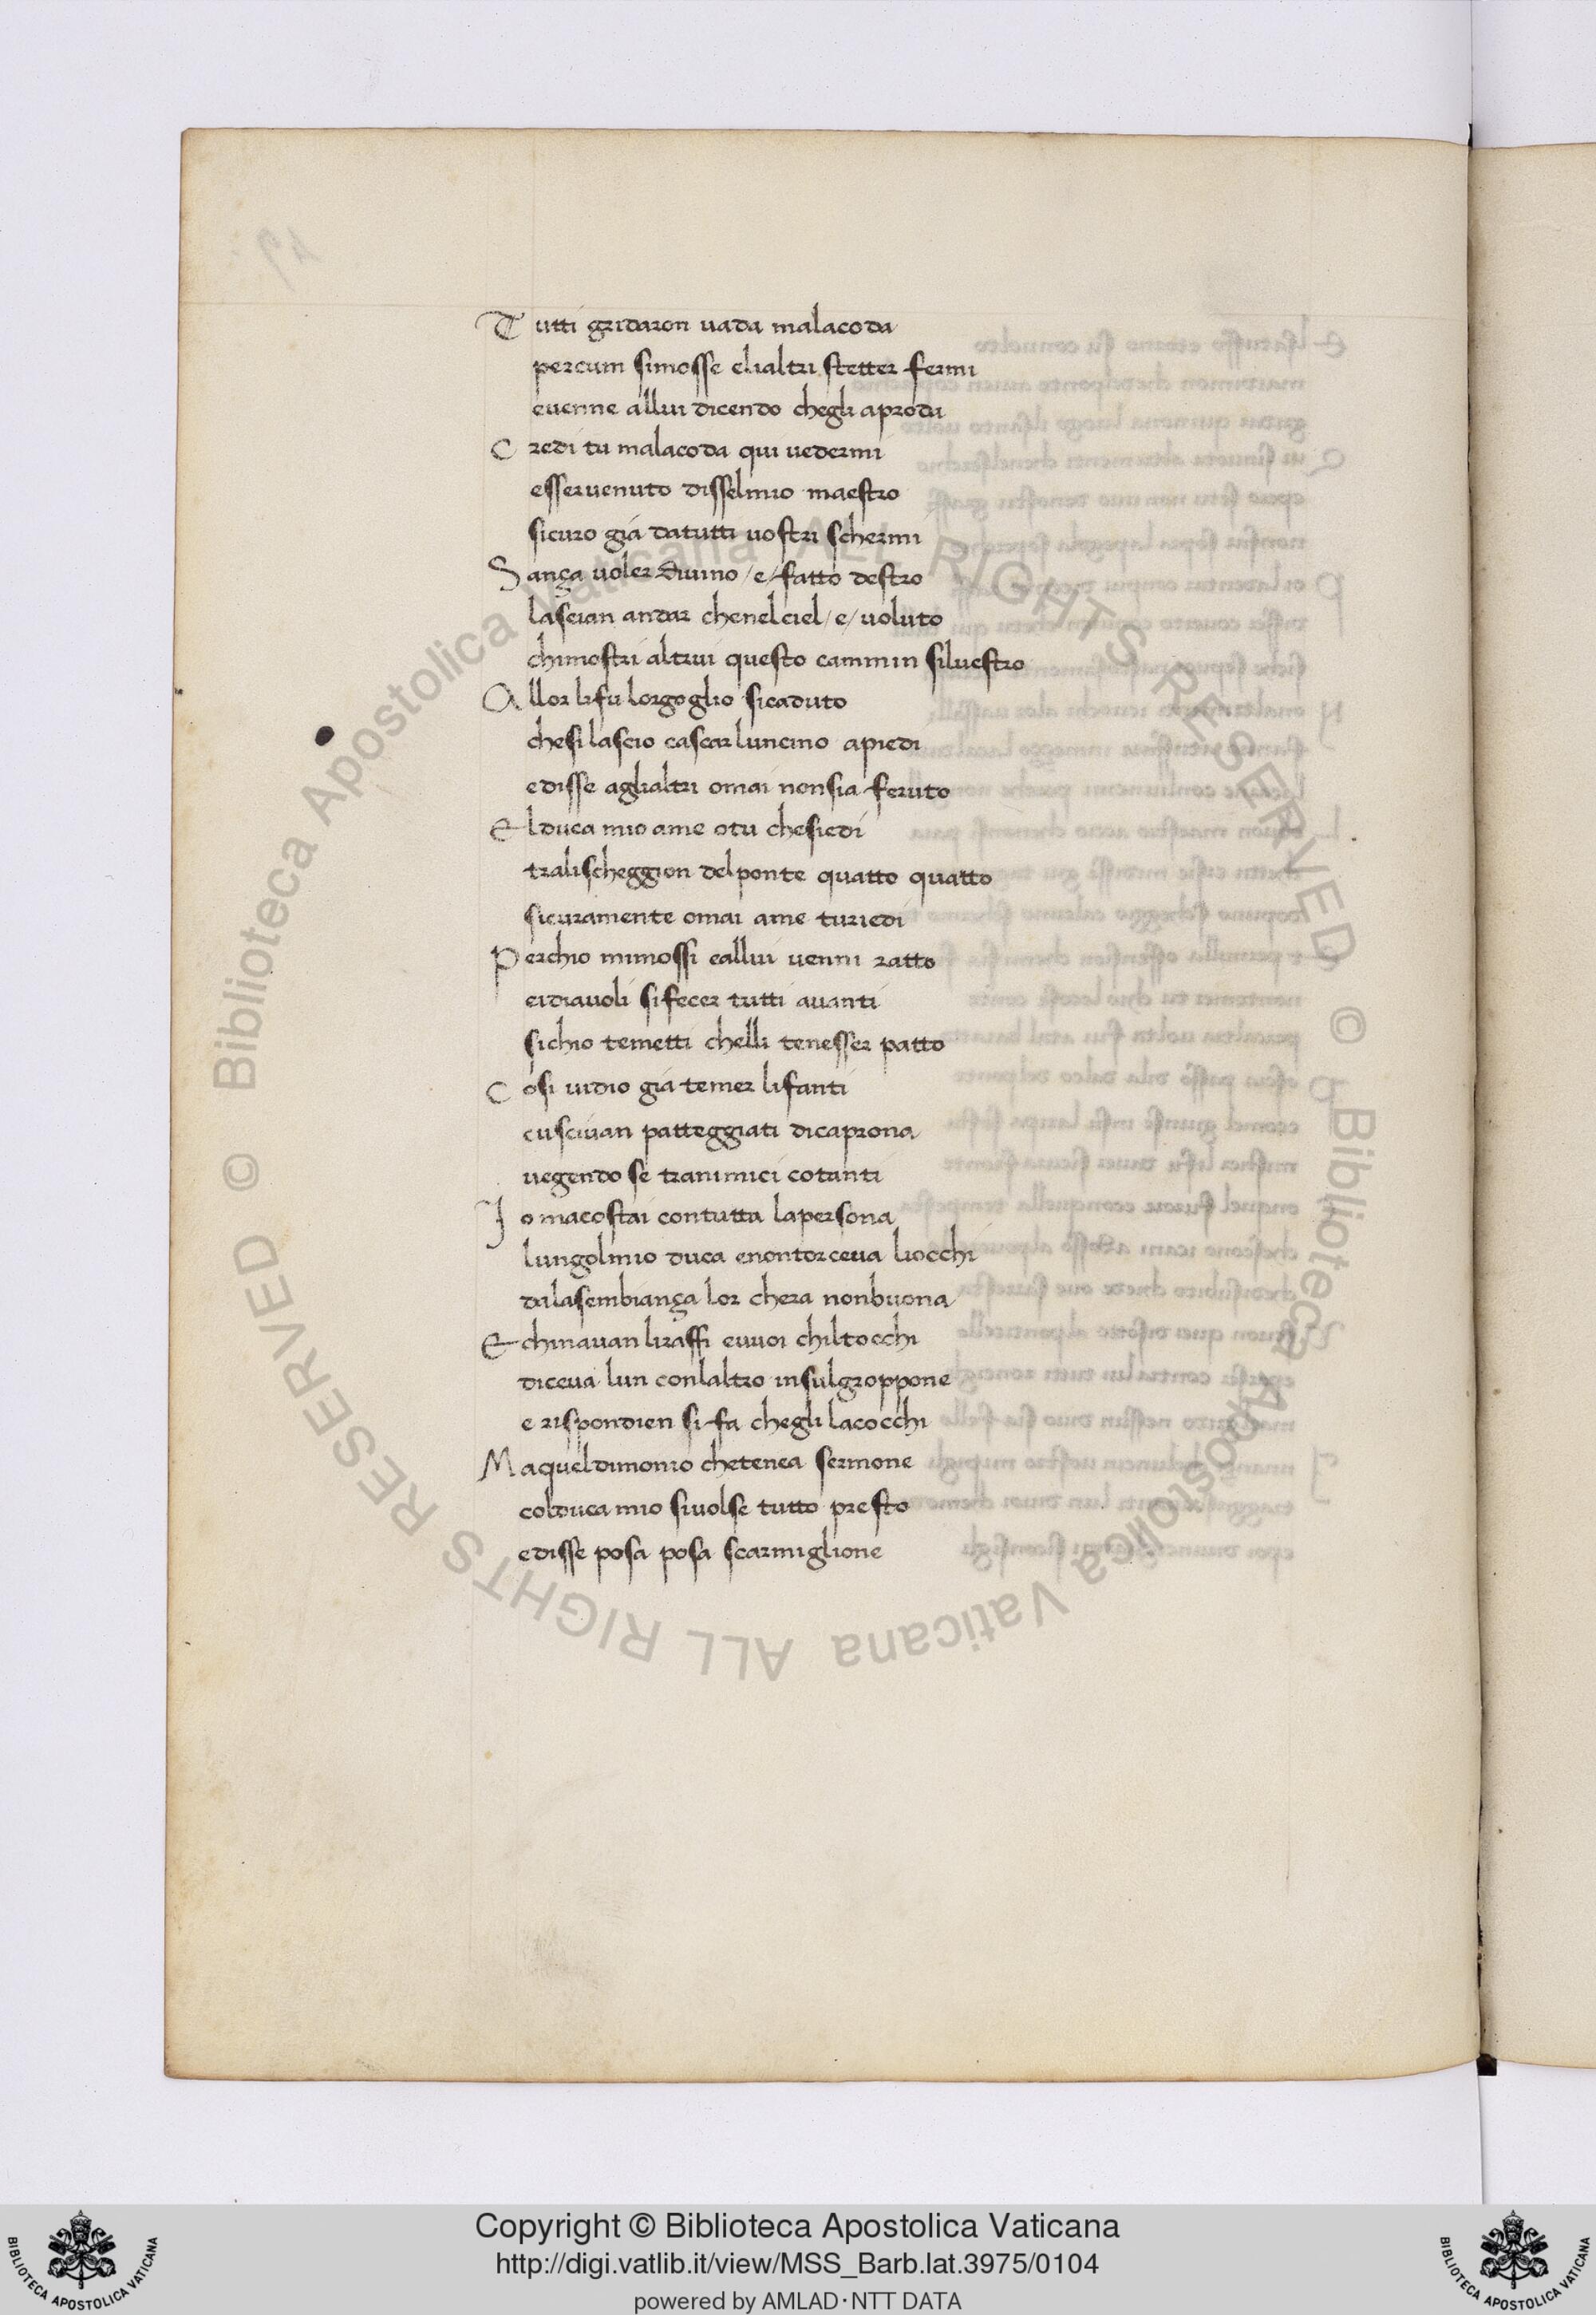 Tutti gridaron uada malacoda
percum simosse elialtri stetter fermi
euenne allui dicendo chegli aproda
Credi tu malacoda qui uedermi
esseruenuto disselmio maestro
sicuro già datutti uostri schermi
Sança uoler diuino /e/ fatto destro
lascian andar chenelciel /e/ uoluto
chimostri altrui questo cammin siluestro
Allor lifu lorgoglio sicaduto
chesi lascio cascar luncino apiedi
edisse aglialtri omai nonsia feruto
Elduca mio ame otu chesiedi
tralischeggion delponte quatto quatto
sicuramente omai ame turiedi
Perchio mimossi eallui uenni ratto
eidiauoli sifecer tutti auanti
sichio temetti chelli tenesser patto
Cosi uidio già temer lifanti
cusciuan patteggiati dicaprona
uegendo se tranimici cotanti
Io macostai contutta lapersona
lungolmio duca enontorceua liocchi
dalasembiança lor chera nonbuona
Echinauan liraffi euuoi chiltocchi
diceua lun conlaltro insulgroppone
e rispondien si fa chegli lacocchi
Maqueldimonio chetenea sermone
colduca mio siuolse tutto presto
edisse posa posa scarmiglione
© Biblioteca Apostolica Vaticana ALL RIGHTS RESERVED © Biblioteca Apostolica Vaticana ALL RIGHTS RESERVED
Copyright © Biblioteca Apostolica Vaticana
http://digi.vatlib.it/view/MSS_Barb.lat.3975/0104
powered by AMLAD·NTT DATA
BIBLIOTECA APOSTOLICA VATICANA
BIBLIOTECA APOSTOLICA VATICANA